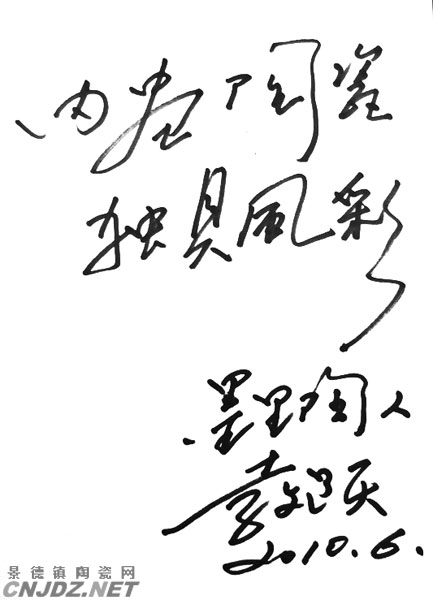 内画陶瓷
独具风彩
墨里陶人
2010.6.
景德镇陶瓷网
CNJDZ.NET